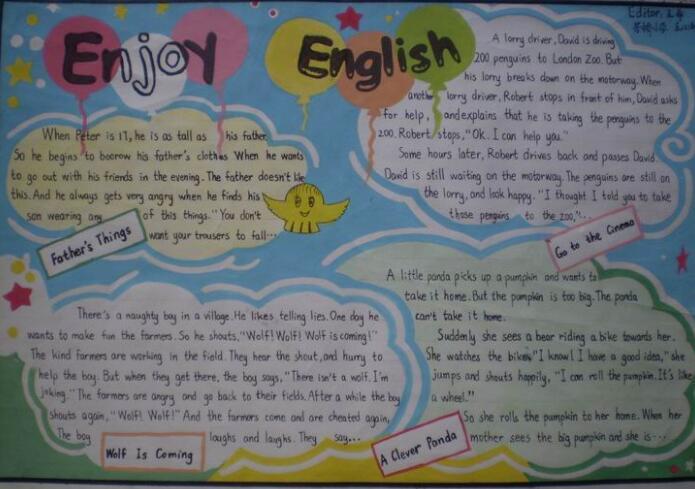 Enjoy English
Editor:
When Peter is 17, he is as tall as his father.
So he begins to boorow his father's clothes When he wants
to go out with his friends in the evening. The father doesn't like
this. And he always gets very angry when he finds his
son wearing any of this things. "You don't
want your trousers to fall...
Father's Things
A lorry driver, David is driving
200 penguins to London Zoo. But
his lorry breaks down on the motorway. When
another lorry driver, Robert stops in front of him, David asks
for help, and explains that he is taking the penguins to the
zoo. Robert stops, "Ok. I can help you."
Some hours later, Robert drives back and passes David.
David is still waiting on the motorway. The penguins are still on
the lorry, and look happy. "I thought I told you to take
those penguins to the zoo,"...
Go to the Cinema
There's a naughty boy in a village. He likes telling lies. One day he
wants to make fun the farmers. So he shouts, "Wolf! Wolf! Wolf is coming!"
The kind farmers are working in the field. They hear the shout, and hurry to
help the boy. But when they get there, the boy says, "There isn't a wolf. I'm
joking." The farmers are angry and go back to their fields. After a while the boy
shouts again, "Wolf! Wolf!" And the farmers come and are cheated again,
The boy laughs and laughs. They say...
Wolf Is Coming
A little panda picks up a pumpkin and wants to
take it home. But the pumpkin is too big. The panda
can't take it home.
Suddenly she sees a bear riding a bike towards her.
She watches the bike. "I know! I have a good idea," she
jumps and shouts happily, "I can roll the pumpkin. It's like
a wheel."
So she rolls the pumpkin to her home. When her
mother sees the big pumpkin and she is...
A Clever Panda